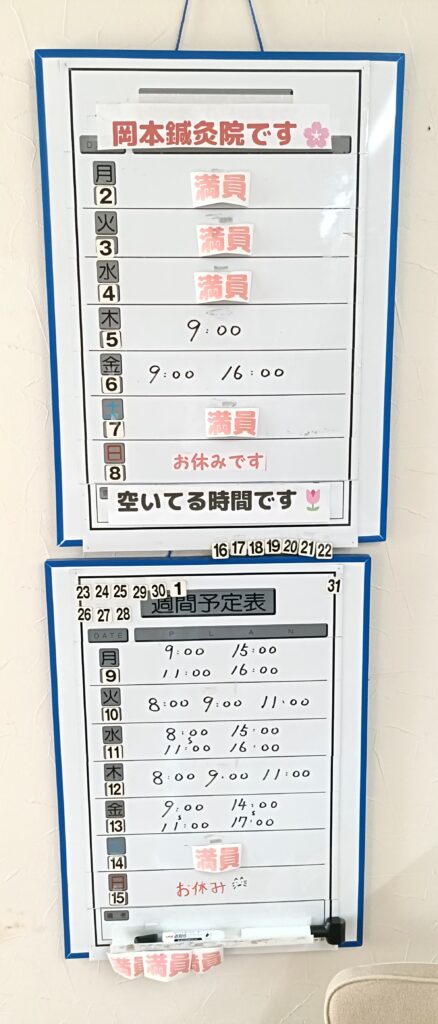 岡本鍼灸院です
月
2 満員
火
3 満員
水
4 満員
木
5 9:00
金
6 9:00 16:00
土
7 満員
日
8 お休みです
空いてる時間です
16 17 18 19 20 21 22
23 24 25 29 30 1 31
26 27 28
週間予定表
DATE PLAN
月 9:00 15:00
9 11:00 16:00
火
10 8:00 9:00 11:00
水 8:00 15:00
11 11:00 16:00
木
12 8:00 9:00 11:00
金 9:00 14:00
13 11:00 17:00
14 満員
日
15 お休み
備考
満員 満員 満員